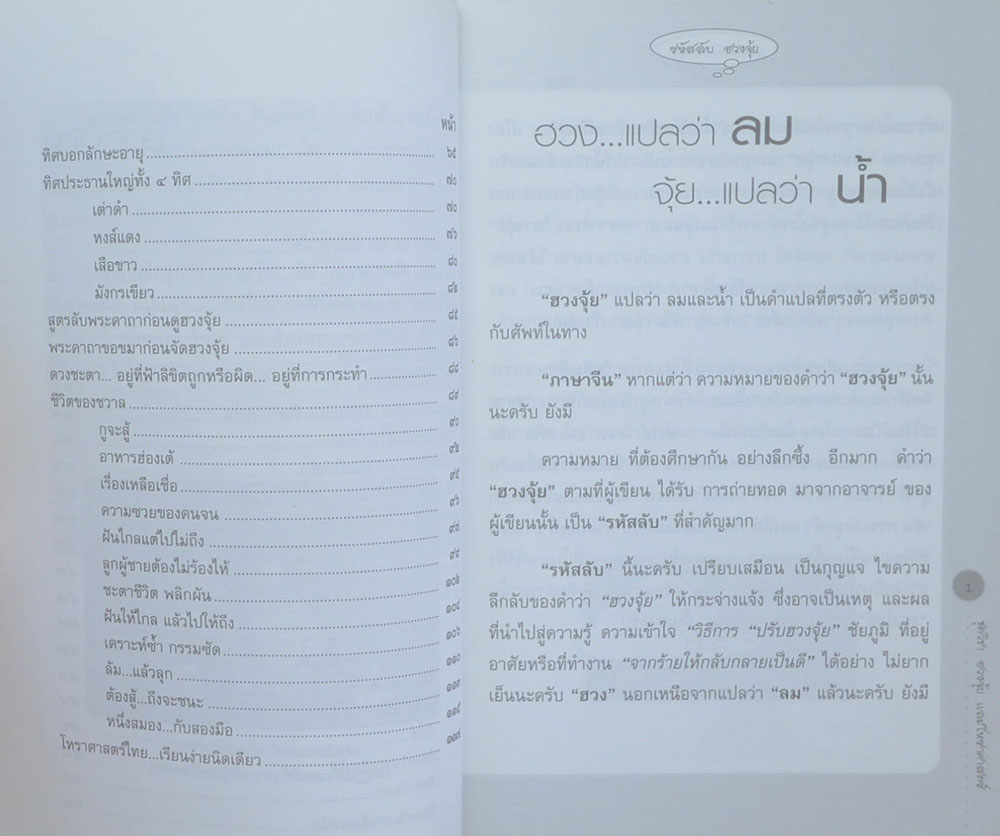 หน้า
ทิศบอกลักษะอายุ ๖๕
ทิศประธานใหญ่ทั้ง ๔ ทิศ ๗๐
เต่าดำ ๗๐
หงส์แดง ๗๖
เสือขาว ๘๐
มังกรเขียว
สูตรลับพระคาถาก่อนดูฮวงจุ้ย
พระคาถาขอขมาก่อนจัดฮวงจุ้ย ๘๖
ดวงชะตา... อยู่ที่ฟ้าลิขิตถูกหรือผิด... อยู่ที่การกระทำ
ชีวิตของชวาล
กูจะสู้ ๙๐
อาหารฮ่องเต้
เรื่องเหลือเชื่อ
ความซวยของคนจน ๙๖
ฝันไกลแต่ไปไม่ถึง
ลูกผู้ชายต้องไม่ร้องไห้
ชะตาชีวิต พลิกผัน
ฝันให้ไกล แล้วไปให้ถึง
เคราะห์ซ้ำ กรรมซัด ๑๐๖
ล้ม...แล้วลุก ๑๑๐
ต้องสู้...ถึงจะชนะ ๑๑๑
หนึ่งสมอง...กับสองมือ
โหราศาสตร์ไทย...เรียนง่ายนิดเดียว ๑๑๗
รหัสลับ ฮวงจุ้ย
ฮวง...แปลว่า ลม
จุ้ย...แปลว่า น้ำ
“ฮวงจุ้ย” แปลว่า ลมและน้ำ เป็นคำแปลที่ตรงตัว หรือตรง
กับศัพท์ในทาง
“ภาษาจีน” หากแต่ว่า ความหมายของคำว่า “ฮวงจุ้ย” นั้น
นะครับ ยังมี
ความหมาย ที่ต้องศึกษากัน อย่างลึกซึ้ง อีกมาก คำว่า
“ฮวงจุ้ย” ตามที่ผู้เขียน ได้รับ การถ่ายทอด มาจากอาจารย์ ของ
ผู้เขียนนั้น เป็น “รหัสลับ” ที่สำคัญมาก
“รหัสลับ” นี้นะครับ เปรียบเสมือน เป็นกุญแจ ไขความ
ลึกลับของคำว่า “ฮวงจุ้ย” ให้กระจ่างแจ้ง ซึ่งอาจเป็นเหตุ และผล
ที่นำไปสู่ความรู้ ความเข้าใจ “วิธีการ “ปรับฮวงจุ้ย” ชัยภูมิ ที่อยู่
อาศัยหรือที่ทำงาน “จากร้ายให้กลับกลายเป็นดี” ได้อย่าง ไม่ยาก
เย็นนะครับ “ฮวง” นอกเหนือจากแปลว่า “ลม” แล้วนะครับ ยังมี
1